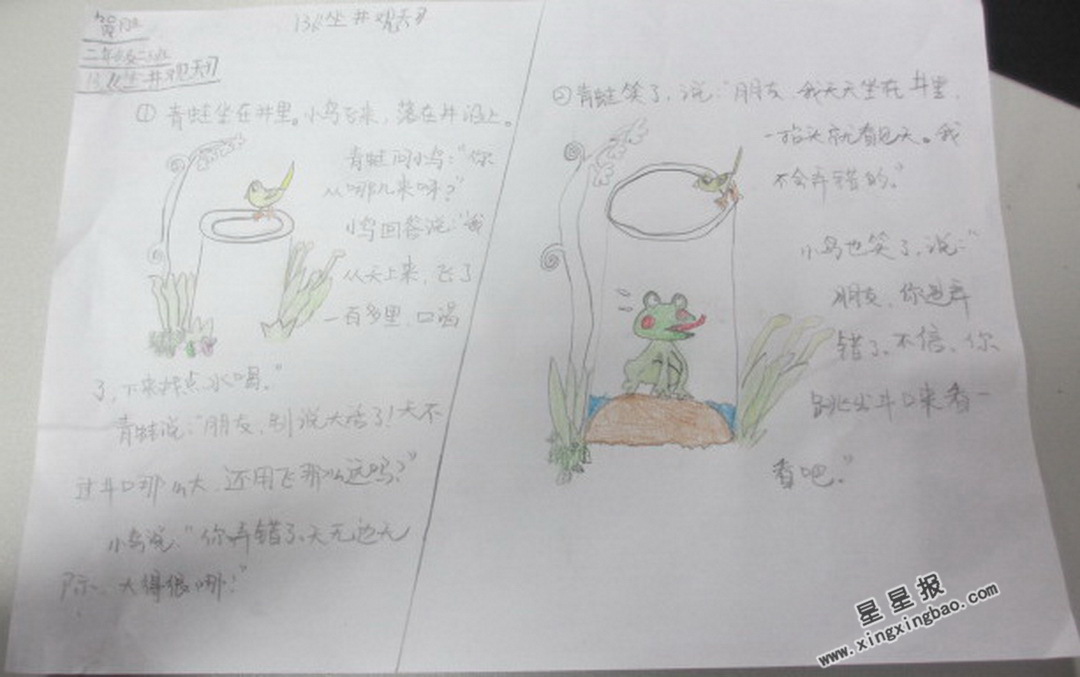 13《坐井观天》
二年级二班
13《坐井观天》
① 青蛙坐在井里。小鸟飞来，落在井沿上。
青蛙问小鸟："你
从哪儿来呀？"
小鸟回答说："我
从天上来，飞了
一百多里，口渴
了，下来找点水喝。"
青蛙说："朋友，别说大话了！天不
过井口那么大，还用飞那么远吗？"
小鸟说："你弄错了，天无边无
际，大得很哪！"
②青蛙笑了，说："朋友，我天天坐在井里，
一抬头就看见天。我
不会弄错的。"
小鸟也笑了，说："
朋友，你是弄
错了。不信，你
跳出井口来看一
看吧。"
星星报
www.xingxingbao.com